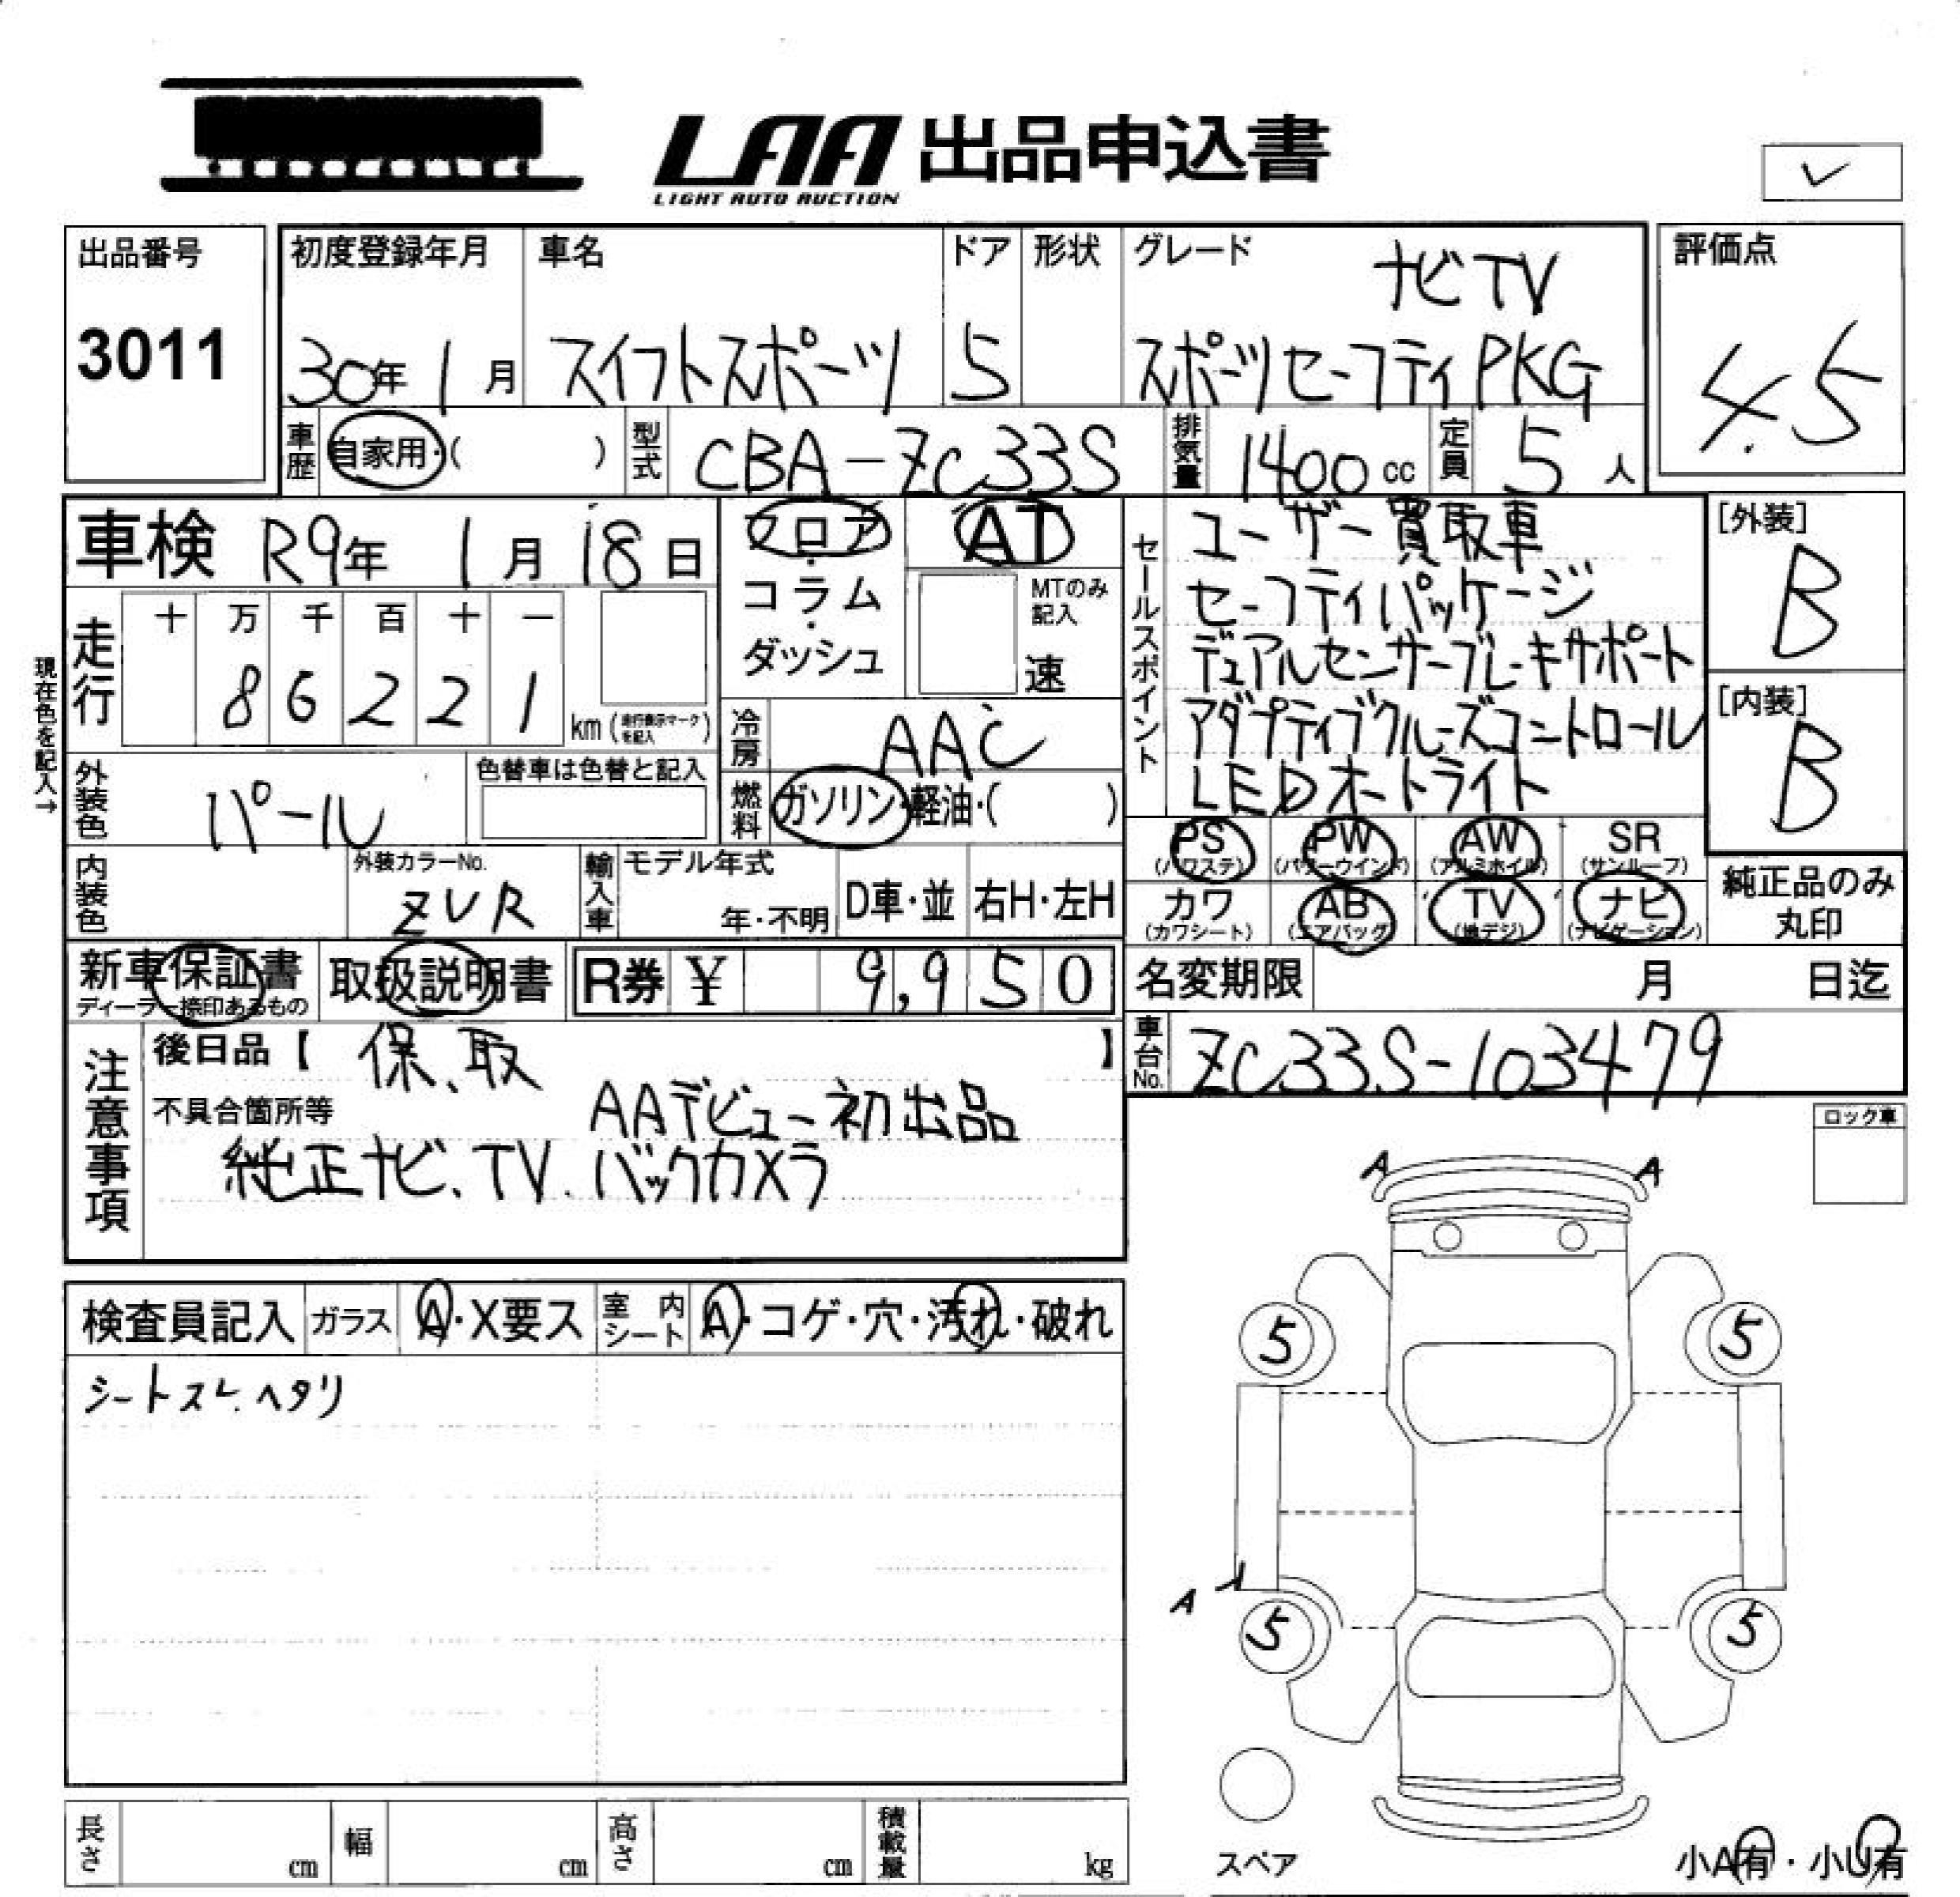 LAA 出品申込書
LIGHT AUTO AUCTION
✓
出品番号
3011
初度登録年月
30年 1月
車名
スイフトスポーツ
ドア
5
形状
グレード
ナビTV
スポーツセーフティPKG
評価点
4.5
車歴
自家用・( )
型式
CBA-ZC33S
排気量
1400cc
定員
5人
車検 R9年 1月 18日
走行
十 万 千 百 十 一
8 6 2 2 1
km (走行表示マークを記入)
現在色を記入→
フロア・
コラム・
ダッシュ
AT
MTのみ記入
速
冷房
AAC
燃料
ガソリン・軽油・( )
外装色
パール
色替車は色替と記入
内装色
外装カラーNo.
ZVR
輸入車
モデル年式
年・不明
D車・並
右H・左H
セールスポイント
ユーザー買取車
セーフティパッケージ
デュアルセンサーブレーキサポート
アダプティブクルーズコントロール
LEDオートライト
[外装]
B
[内装]
B
PS (パワステ)
PW (パワーウインド)
AW (アルミホイル)
SR (サンルーフ)
カワ (カワシート)
AB (エアバッグ)
TV (地デジ)
ナビ (ナビゲーション)
純正品のみ
丸印
新車保証書
ディーラー捺印あるもの
取扱説明書
R券 ¥ 9,950
名変期限 月 日迄
車台No.
ZC33S-103479
注意事項
後日品【 保、取 】
不具合箇所等
AAデビュー初出品
純正ナビ、TV、バックカメラ
ロック車
検査員記入
ガラス
A・X要ス
室内シート
A・コゲ・穴・汚れ・破れ
シートスレ、ヘタリ
A A
5 5
A
5 5
スペア
小A有・小U有
長さ cm
幅 cm
高さ cm
積載量 kg